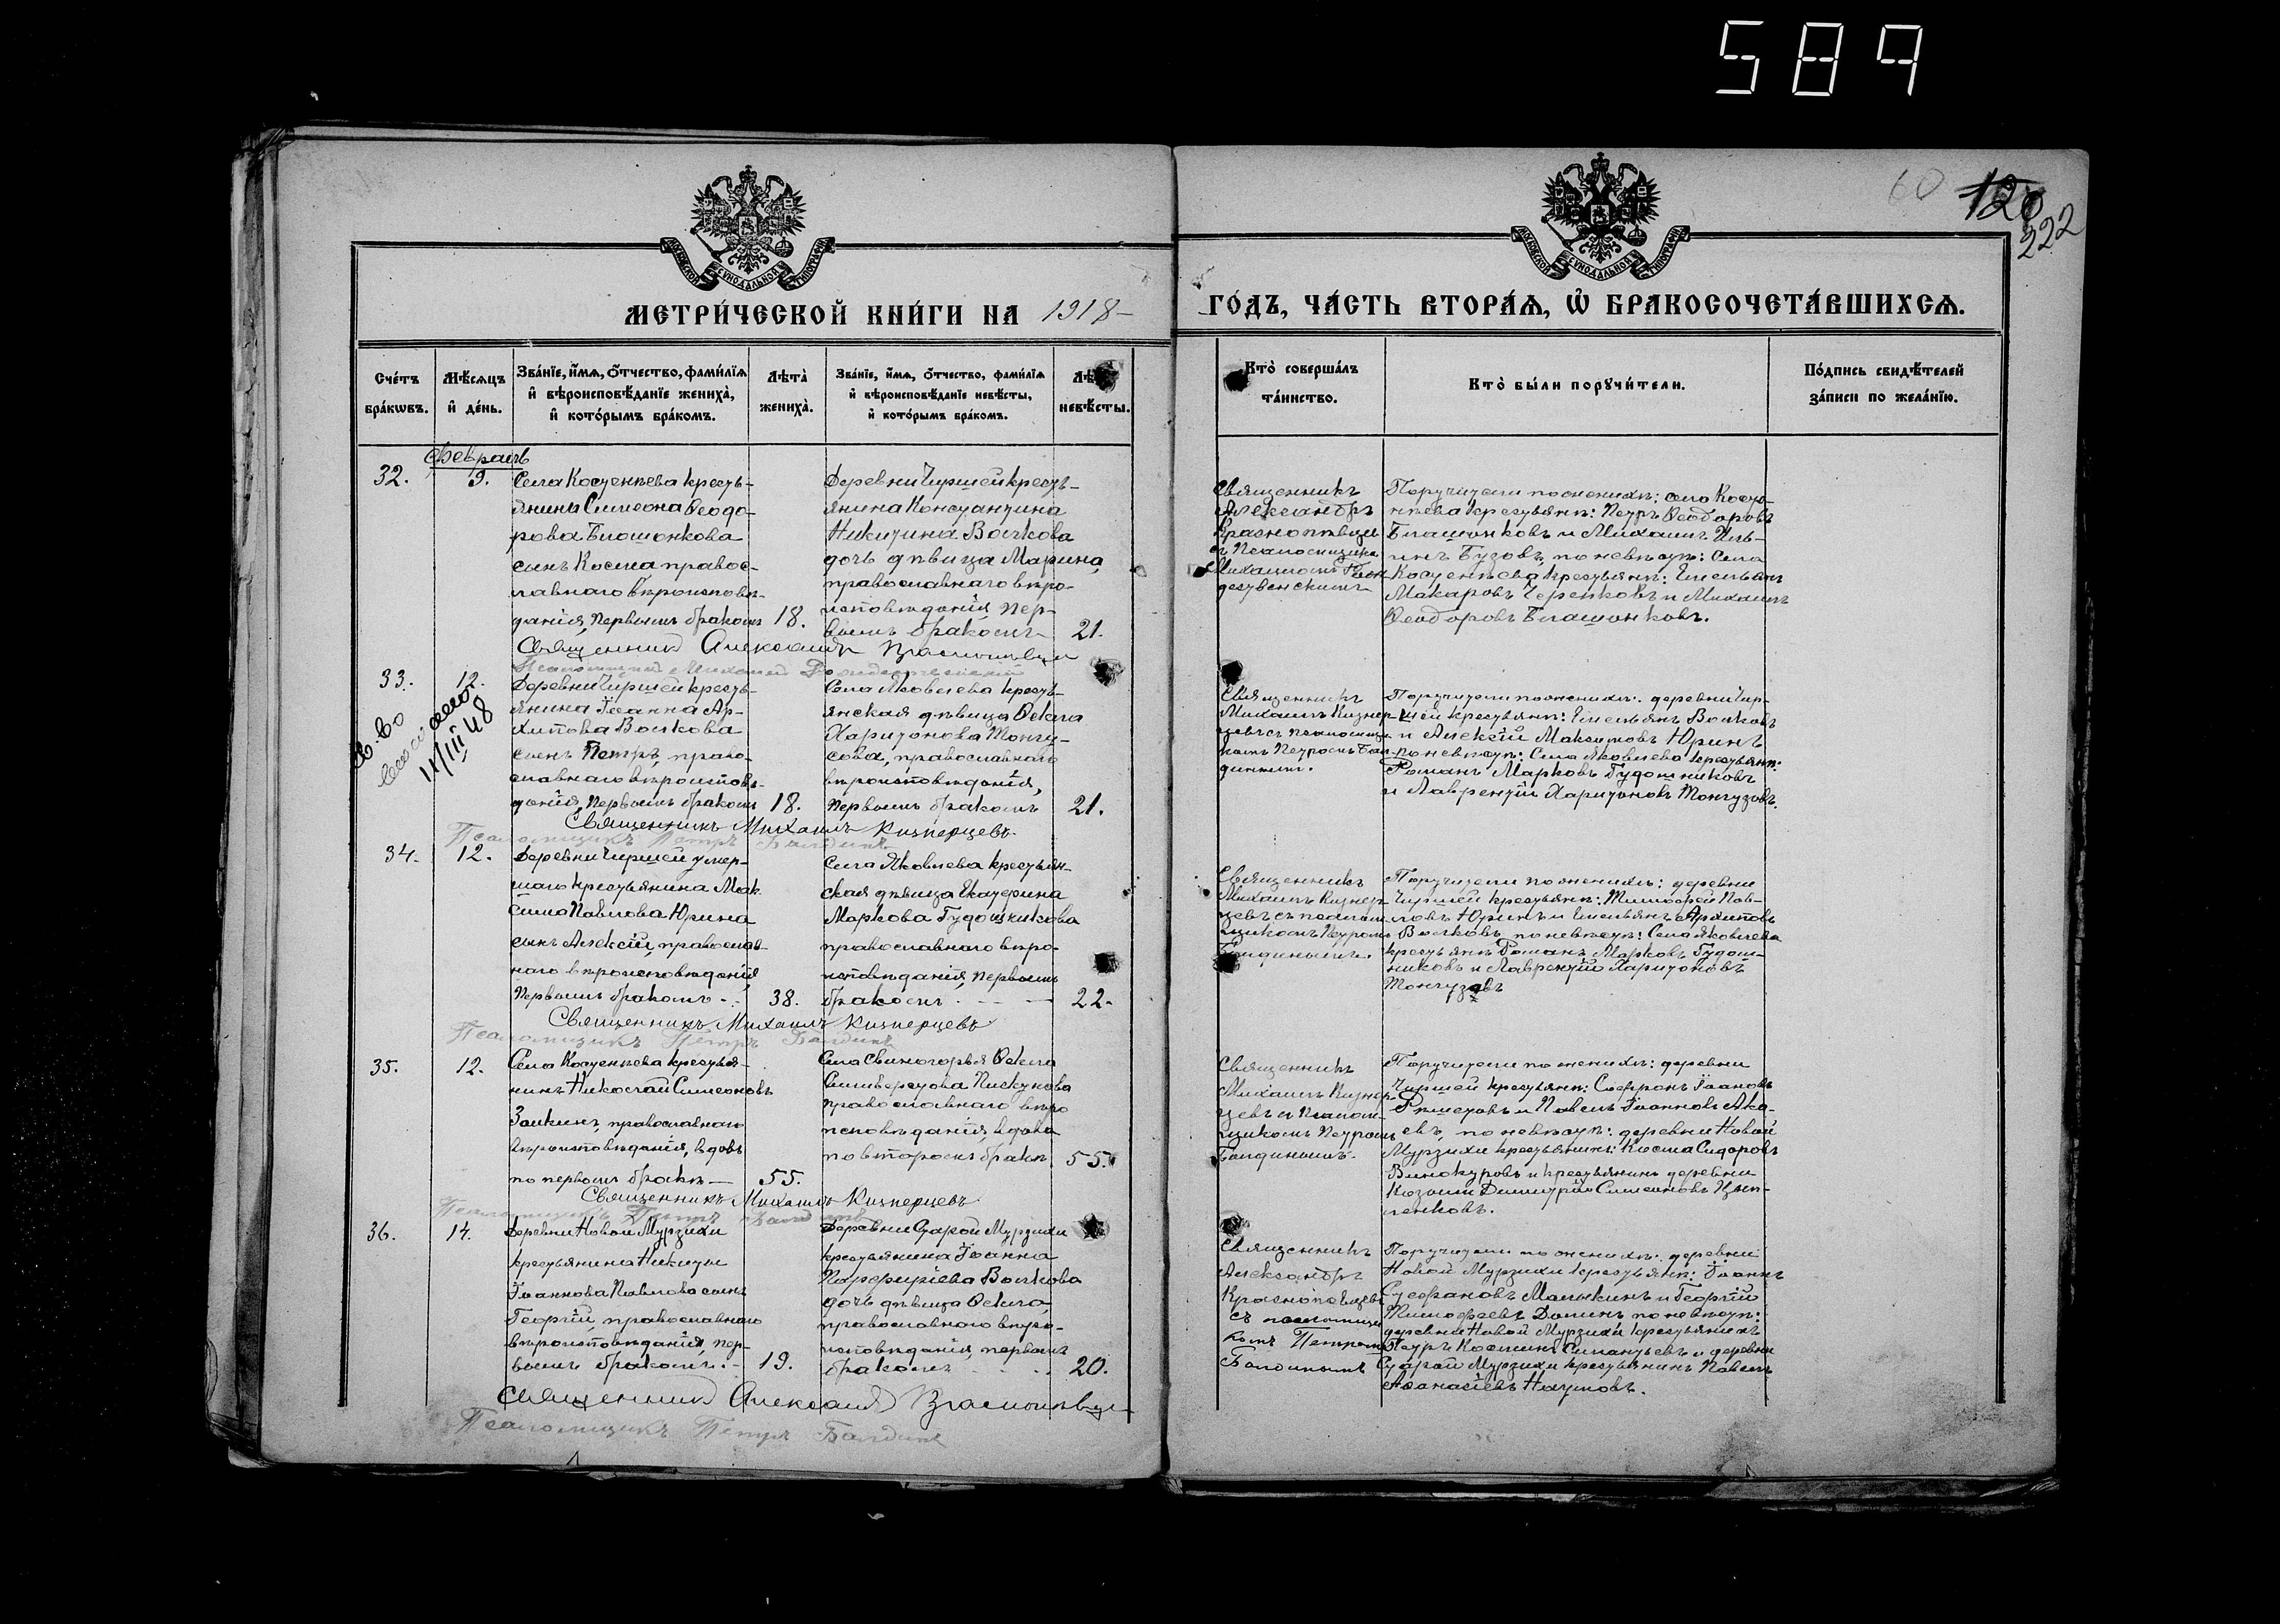 589
60
120
222
МОСКОВСКОЙ СѴНОДАЛЬНОЙ ТИПОГРАФІИ
МОСКОВСКОЙ СѴНОДАЛЬНОЙ ТИПОГРАФІИ
МЕТРИ́ЧЕСКОЙ КНИ́ГИ НА 1918
ГО́ДЪ, ЧА́СТЬ ВТОРА́Я, Ѽ БРАКОСОЧЕТА́ВШИХСЯ.
Сче́тъ бра́кѡвъ.
Мѣ́сяцъ и҆ де́нь.
Зва́нїе, и҆́мя, ѻ҆́тчество, фами́лїя
и҆ вѣроисповѣ́данїе жениха̀,
и҆ кото́рымъ бра́комъ.
Лѣта̀ жениха̀.
Зва́нїе, и҆́мя, ѻ҆́тчество, фами́лїя
и҆ вѣроисповѣ́данїе невѣ́сты,
и҆ кото́рымъ бра́комъ.
невѣ́сты.
Кто̀ соверша́лъ
та́инство.
Кто̀ бы́ли порꙋчи́тели.
По́дпись свидѣ́телей
за́писи по жела́нїю.
Февраль
32.
9.
Села Костенѣева кресть-
янина Симеона Ѳеодо-
рова
сынъ Косма правос-
лавнаго вѣроисповѣ-
данія, первымъ бракомъ
18.
Деревни Чиршей кресть-
янина Константина
Никитина Волкова
дочь дѣвица Марина,
православнаго вѣро-
исповѣданія, пер-
вымъ бракомъ
21.
Священникъ
Александръ
Краснопѣвцевъ
съ псаломщикомъ
Михаиломъ Рож-
дественскимъ
Поручители по женихѣ: села Косте-
нѣева крестьяне: Петръ Ѳеодоровъ
и Михаилъ Иль-
инъ Бузовъ, по невѣстѣ: Села
Костенѣева крестьяне: Емельянъ
Макаровъ Черенковъ и Михаилъ
Ѳеодоровъ
Священникъ Александръ Краснопѣвцевъ
Псаломщикъ Михаилъ Рождественскій
33.
12.
11/III 48
Деревни Чиршей кресть-
янина Іоанна Ар-
хипова Волкова
сынъ Петръ, право-
славнаго вѣроисповѣ-
данія, первымъ бракомъ
18.
Села Яковлева кресть-
янская дѣвица Ѳекла
Харитонова Тонгу-
сова, православнаго
вѣроисповѣданія,
первымъ бракомъ
21.
Священникъ
Михаилъ Кизнер-
цевъ съ псаломщи-
комъ Петромъ Бал-
динымъ.
Поручители по женихѣ: деревни Чир-
шей крестьяне: Емельянъ Волковъ
и Алексій Максимовъ Юринъ
по невѣстѣ: Села Яковлева крестьяне:
Романъ Марковъ Гудошниковъ
и Лаврентій Харитоновъ Тонгузовъ.
Священникъ Михаилъ Кизнерцевъ
Псаломщикъ Петръ Балдинъ
34.
12.
Деревни Чиршей умер-
шаго крестьянина Мак-
сима Павлова Юрина
сынъ Алексій, православ-
наго вѣроисповѣданія,
первымъ бракомъ
38.
Села Яковлева крестьян-
ская дѣвица Екатерина
Маркова Гудошникова
православнаго вѣро-
исповѣданія, первымъ
бракомъ
22.
Священникъ
Михаилъ Кизнер-
цевъ съ псалом-
щикомъ Петромъ
Балдинымъ.
Поручители по женихѣ: деревни
Чиршей крестьяне: Тимофей Пав-
ловъ Юринъ и Емельянъ Архиповъ
Волковъ, по невѣстѣ: Села Яковлева
крестьяне Романъ Марковъ Гудош-
никовъ и Лаврентій Харитоновъ
Тонгузовъ
Священникъ Михаилъ Кизнерцевъ
Псаломщикъ Петръ Балдинъ
35.
12.
Села Костенѣева крестья-
нинъ Николай Симеоновъ
Заикинъ, православнаго
вѣроисповѣданія, вдовъ
по первомъ бракѣ
55.
Села Свиногорья Ѳекла
Сильверстова Пискунова
православнаго вѣро
исповѣданія, вдова
по второмъ бракѣ
55.
Священникъ
Михаилъ Кизнер-
цевъ съ псалом-
щикомъ Петромъ
Балдинымъ.
Поручители по женихѣ: деревни
Чиршей крестьяне: Софронъ Іоанновъ
и Павелъ Іоанновъ
по невѣстѣ: деревни Новой
Мурзихи крестьянинъ: Косма Сидоровъ
Винокуровъ и крестьянинъ деревни
Димитрій Симеоновъ Цып-
ленковъ.
Священникъ Михаилъ Кизнерцевъ
Псаломщикъ Петръ Балдинъ
36.
14.
Деревни Новой Мурзихи
крестьянина Никиты
Іоаннова Павлова сынъ
Георгій, православнаго
вѣроисповѣданія, пер-
вымъ бракомъ
19.
Деревни Старой Мурзихи
крестьянина Іоанна
Порфиріева Волкова
дочь дѣвица Ѳекла,
православнаго вѣро-
исповѣданія, первымъ
бракомъ
20.
Священникъ
Александръ
Краснопѣвцевъ
съ псаломщи
комъ Петромъ
Балдинымъ
Поручители по женихѣ: деревни
Новой Мурзихи крестьяне: Іоаннъ
Стефановъ Малыкинъ и Георгій
Тимофеевъ Долинъ по невѣстѣ:
деревни Новой Мурзихи крестьянинъ
Петръ Косминъ и деревни
Старой Мурзихи крестьянинъ Павелъ
Аѳанасіевъ Наумовъ.
Священникъ Александръ Краснопѣвцевъ
Псаломщикъ Петръ Балдинъ